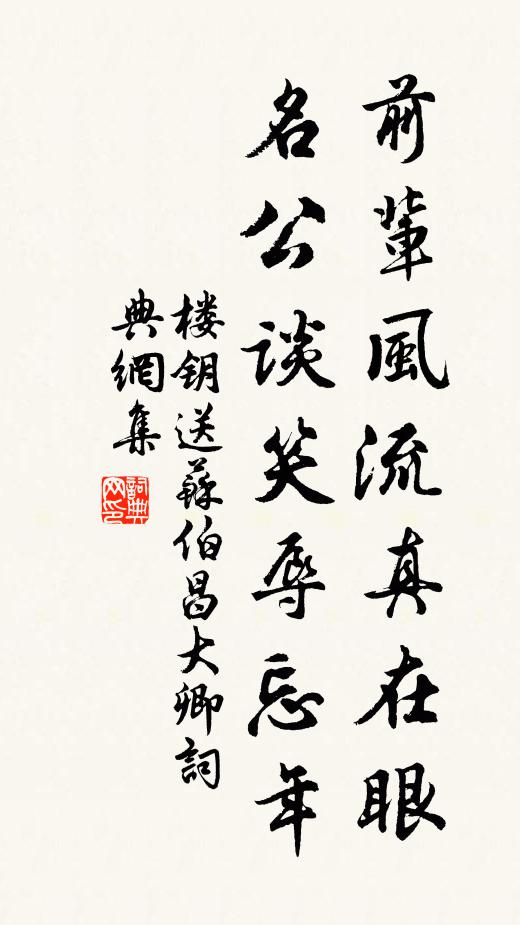 前輩風流真在眼
名公談笑辱忘年
楼钥送蘇伯昌大卿詞
典網集
詞典网印